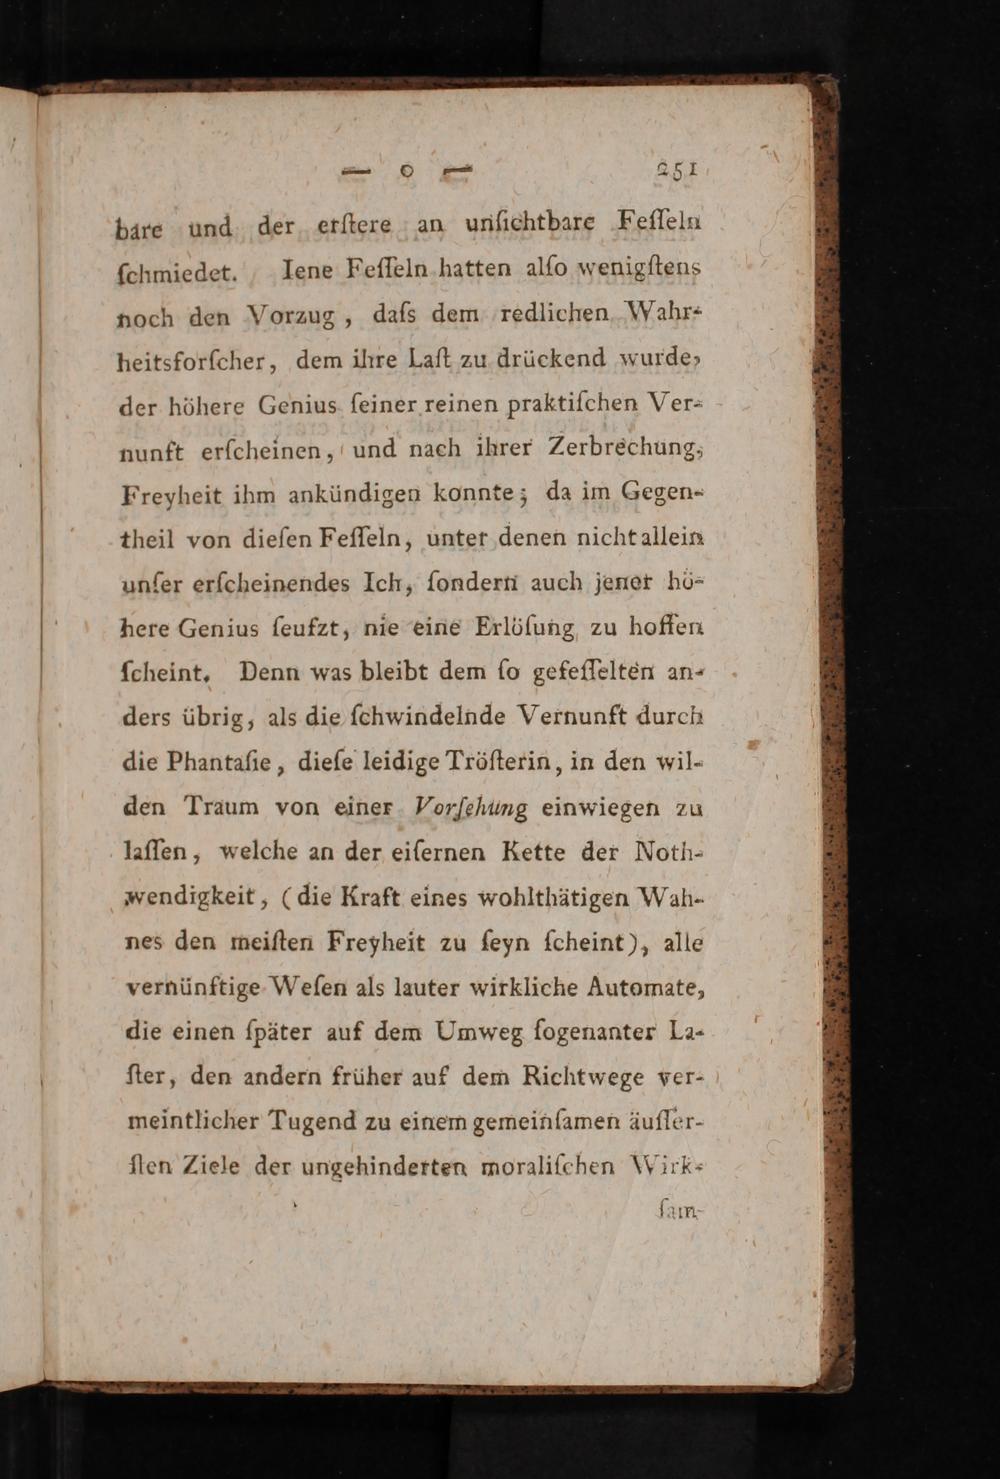 — o — 251
bare und der erſtere an unſichtbare Feſſeln
ſchmiedet. Iene Feſſeln hatten alſo wenigſtens
noch den Vorzug, daſs dem redlichen Wahr-
heitsforſcher, dem ihre Laſt zu drückend wurde,
der höhere Genius ſeiner reinen praktiſchen Ver-
nunft erſcheinen, und nach ihrer Zerbrechung,
Freyheit ihm ankündigen konnte; da im Gegen-
theil von dieſen Feſſeln, unter denen nicht allein
unſer erſcheinendes Ich, ſondern auch jener hö-
here Genius ſeufzt, nie eine Erlöſung zu hoffen
ſcheint. Denn was bleibt dem ſo gefeſſelten an-
ders übrig, als die ſchwindelnde Vernunft durch
die Phantaſie, dieſe leidige Tröſterin, in den wil-
den Traum von einer Vorſehung einwiegen zu
laſſen, welche an der eiſernen Kette der Noth-
wendigkeit, (die Kraft eines wohlthätigen Wah-
nes den meiſten Freyheit zu ſeyn ſcheint), alle
vernünftige Weſen als lauter wirkliche Automate,
die einen ſpäter auf dem Umweg ſogenanter La-
ſter, den andern früher auf dem Richtwege ver-
meintlicher Tugend zu einem gemeinſamen äuſſer-
ſten Ziele der ungehinderten moraliſchen Wirk-
ſam-